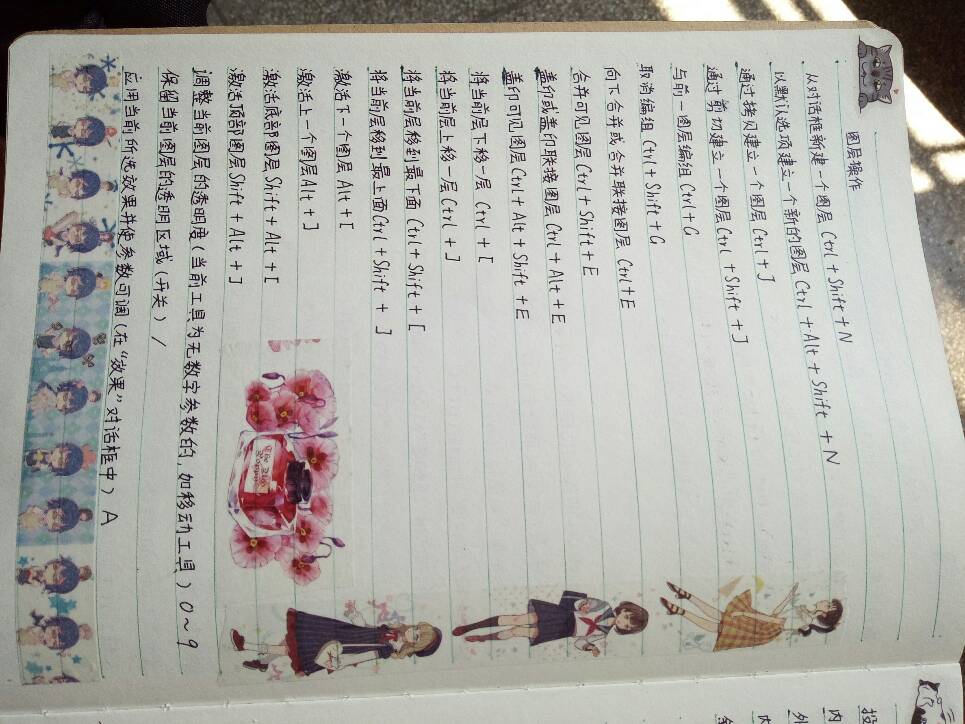 图层操作
从对话框新建一个图层 Ctrl + Shift + N
以默认选项建立一个新的图层 Ctrl + Alt + Shift + N
通过拷贝建立一个图层 Ctrl + J
通过剪切建立一个图层 Ctrl + Shift + J
与前一图层编组 Ctrl + G
取消编组 Ctrl + Shift + G
向下合并或合并联接图层 Ctrl + E
合并可见图层 Ctrl + Shift + E
盖印或盖印联接图层 Ctrl + Alt + E
盖印可见图层 Ctrl + Alt + Shift + E
将当前层下移一层 Ctrl + [
将当前层上移一层 Ctrl + ]
将当前层移到最下面 Ctrl + Shift + [
将当前层移到最上面 Ctrl + Shift + ]
激活下一个图层 Alt + [
激活上一个图层 Alt + ]
激活底部图层 Shift + Alt + [
激活顶部图层 Shift + Alt + ]
调整当前图层的透明度(当前工具为无数字参数的,加移动工具) 0~9
保留当前图层的透明区域(开关) /
应用当前所选效果并使参数可调(在"效果"对话框中) A